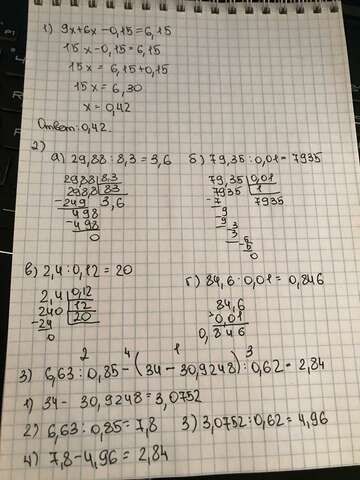 1) 9x+6x-0,15=6,15
15x-0,15=6,15
15x=6,15+0,15
15x=6,30
x=0,42
Ответ: 0,42.
2)
а) 29,88:8,3=3,6 б) 79,35:0,01=7935
29,88 8,3 79,35 0,01
298,8 83 7935 1
-249 3,6 -7 7935
498 9
-498 -9
0 3
-3
5
-5
0
в) 2,4:0,12=20 г) 84,6:0,01=0,846
2,4 0,12 84,6
240 12 0,01
-24 20 0,846
0
2 4 1 3
3) 6,63:0,85-(34-30,9248):0,62=2,84
1) 34-30,9248=3,0752
2) 6,63:0,85=7,8 3) 3,0752:0,62=4,96
4) 7,8-4,96=2,84